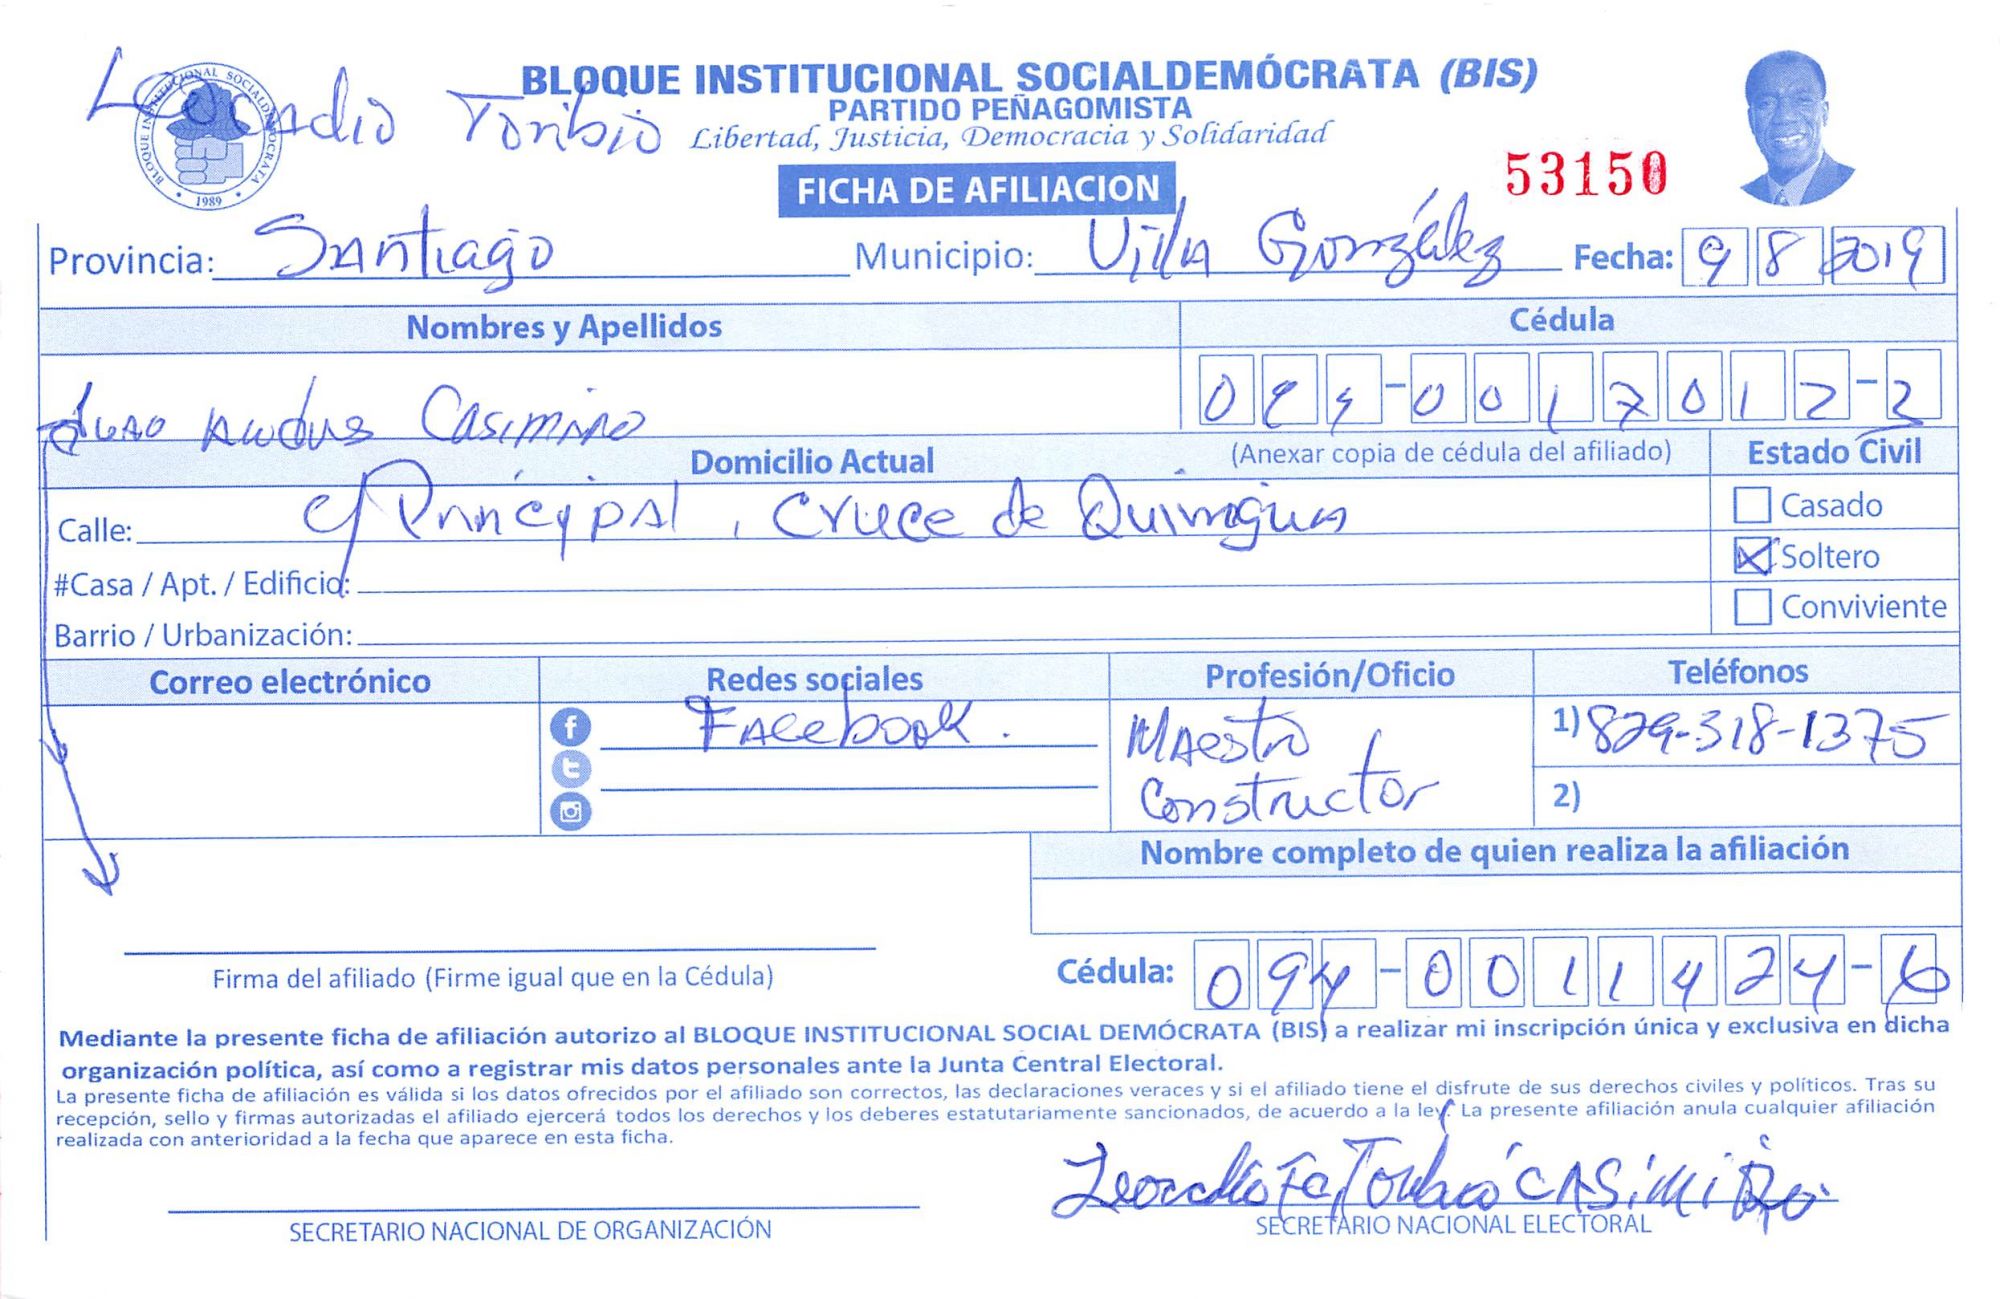 Leocadio Toribio
BLOQUE INSTITUCIONAL SOCIALDEMÓCRATA (BIS)
PARTIDO PEÑAGOMISTA
Libertad, Justicia, Democracia y Solidaridad
BLOQUE INSTITUCIONAL SOCIALDEMOCRATA
1989
FICHA DE AFILIACION
53150
Provincia: Santiago Municipio: Villa González Fecha: 9 8 2019
Nombres y Apellidos Cédula
Casimiro 0 9 4 - 0 0 1 7 0 1 2 - 2
Domicilio Actual (Anexar copia de cédula del afiliado) Estado Civil
Calle: C/ Principal, Cruce de Quinigua
Casado
#Casa / Apt. / Edificio: Soltero
Barrio / Urbanización: Conviviente
Correo electrónico Redes sociales Profesión/Oficio Teléfonos
Facebook. Maestro 1) 829-318-1375
Constructor 2)
Nombre completo de quien realiza la afiliación
Firma del afiliado (Firme igual que en la Cédula) Cédula: 0 9 4 - 0 0 1 1 4 2 4 - 6
Mediante la presente ficha de afiliación autorizo al BLOQUE INSTITUCIONAL SOCIAL DEMÓCRATA (BIS) a realizar mi inscripción única y exclusiva en dicha
organización política, así como a registrar mis datos personales ante la Junta Central Electoral.
La presente ficha de afiliación es válida si los datos ofrecidos por el afiliado son correctos, las declaraciones veraces y si el afiliado tiene el disfrute de sus derechos civiles y políticos. Tras su
recepción, sello y firmas autorizadas el afiliado ejercerá todos los derechos y los deberes estatutariamente sancionados, de acuerdo a la ley. La presente afiliación anula cualquier afiliación
realizada con anterioridad a la fecha que aparece en esta ficha.
Leocadio Toribio CASIMIRO
SECRETARIO NACIONAL DE ORGANIZACIÓN SECRETARIO NACIONAL ELECTORAL